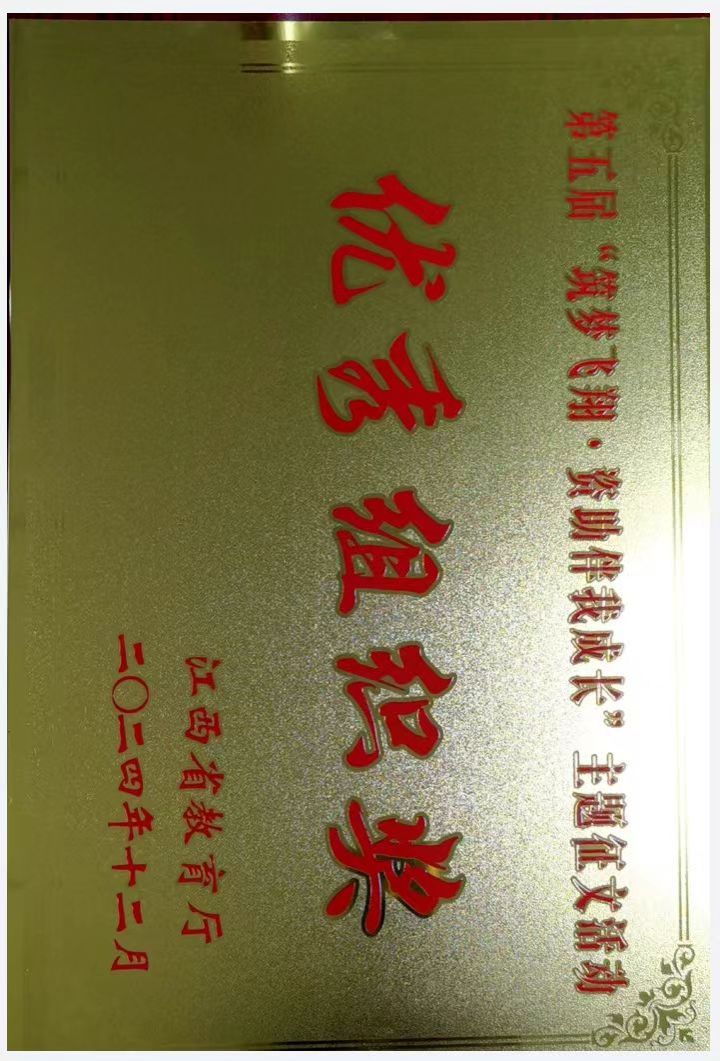 第五届“筑梦飞翔·资助伴我成长”主题征文活动
优秀组织奖
江西省教育厅
二〇二四年十二月